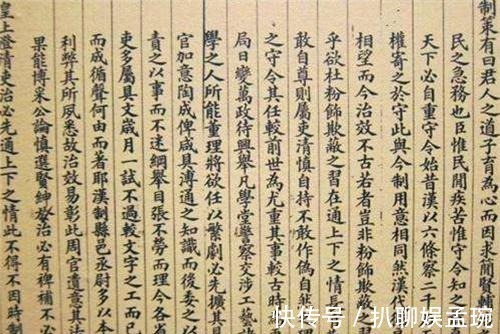 制策有曰君人之道子育為心而因求簡賢輔
民之急務也臣惟民間疾苦惟守令知之
天下必自重守令始昔漢以六條察二千
權寄之於守此與今制用意相同然漢代
相望而今治效不古若者豈非粉飾欺敵
乎欲杜粉飾欺敵之習在通上下之情長
之守令其任較前世為尤重其事較古時
敢自尊則屬吏清慎自持不敢作偽自然
局日變萬政待興舉凡學堂警察交涉工藝
學之人所能董理將欲任以繁劇必先擴其
官加意陶成俾咸具溥通之知識而後委之以
責之以事而不迷綱舉目張不勞而理今各省
吏多屬具文歲月一試不過較文字之工而已
而成循聲何由而著耶漢制縣邑丞尉多以本
利弊其所夙悉故治效易彰此周官遺意其法
果能博采公論慎選賢紳於治必有裨補不必
皇上澄清吏治必先通上下之情此不得不因時制
快传号/扒聊娱孟琬